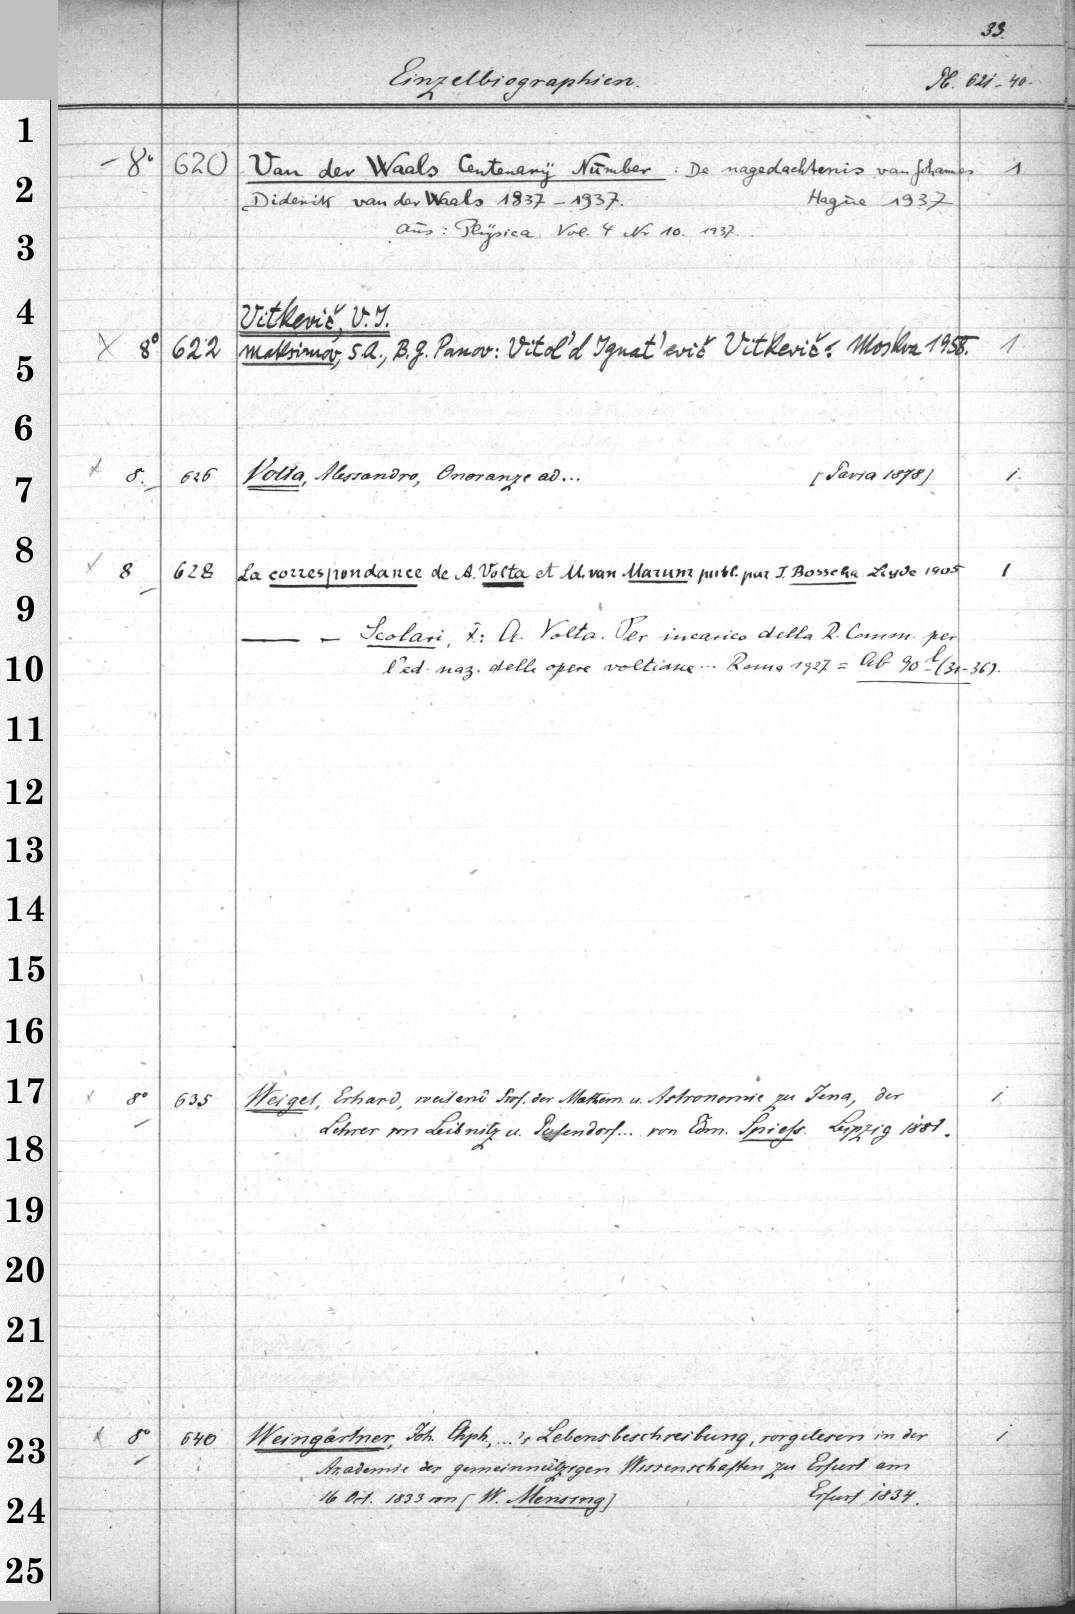 33.
Einzelbiographien. Pb. 621-40.
1
2
3
4
5
6
7
8
9
10
11
12
13
14
15
16
17
18
19
20
21
22
23
24
25
- 8° 620 Van der Waals Centenary Number : De nagedachtenis van Johannes 1
Diderik van der Waals 1837-1937. Hague 1937
aus: Physica. Vol. 4 Nr 10. 1937.
Vitkevič, V.I.
x 8° 622 Maksimov, S.A., B.G. Panov: Vitol'd Ignat'evič Vitkevič. Moskva 1958. 1
x 8. 626 Volta, Alessandro, Onoranze ad... [Pavia 1878] 1.
x 8 628 La correspondance de A. Volta et M. van Marum publ. par J. Bosscha Leyde 1905 1
— – Scolari, F.: A. Volta. Per incarico della R. Comm. per
l'ed. naz. delle opere voltiane... Roma 1927 = Ab 90 l (31-36).
x 8° 635 Weigel, Erhard, weiland Prof. der Mathem. u. Astronomie zu Jena, der 1
Lehrer von Leibnitz u. Pufendorf... von Edm. Spieß. Leipzig 1881.
x 8° 640 Weingärtner, Joh. Chph., ...'s Lebensbeschreibung, vorgelesen in der 1
Akademie der gemeinnützigen Wissenschaften zu Erfurt am
16 Oct. 1833 von [W. Mensing] Erfurt 1834.